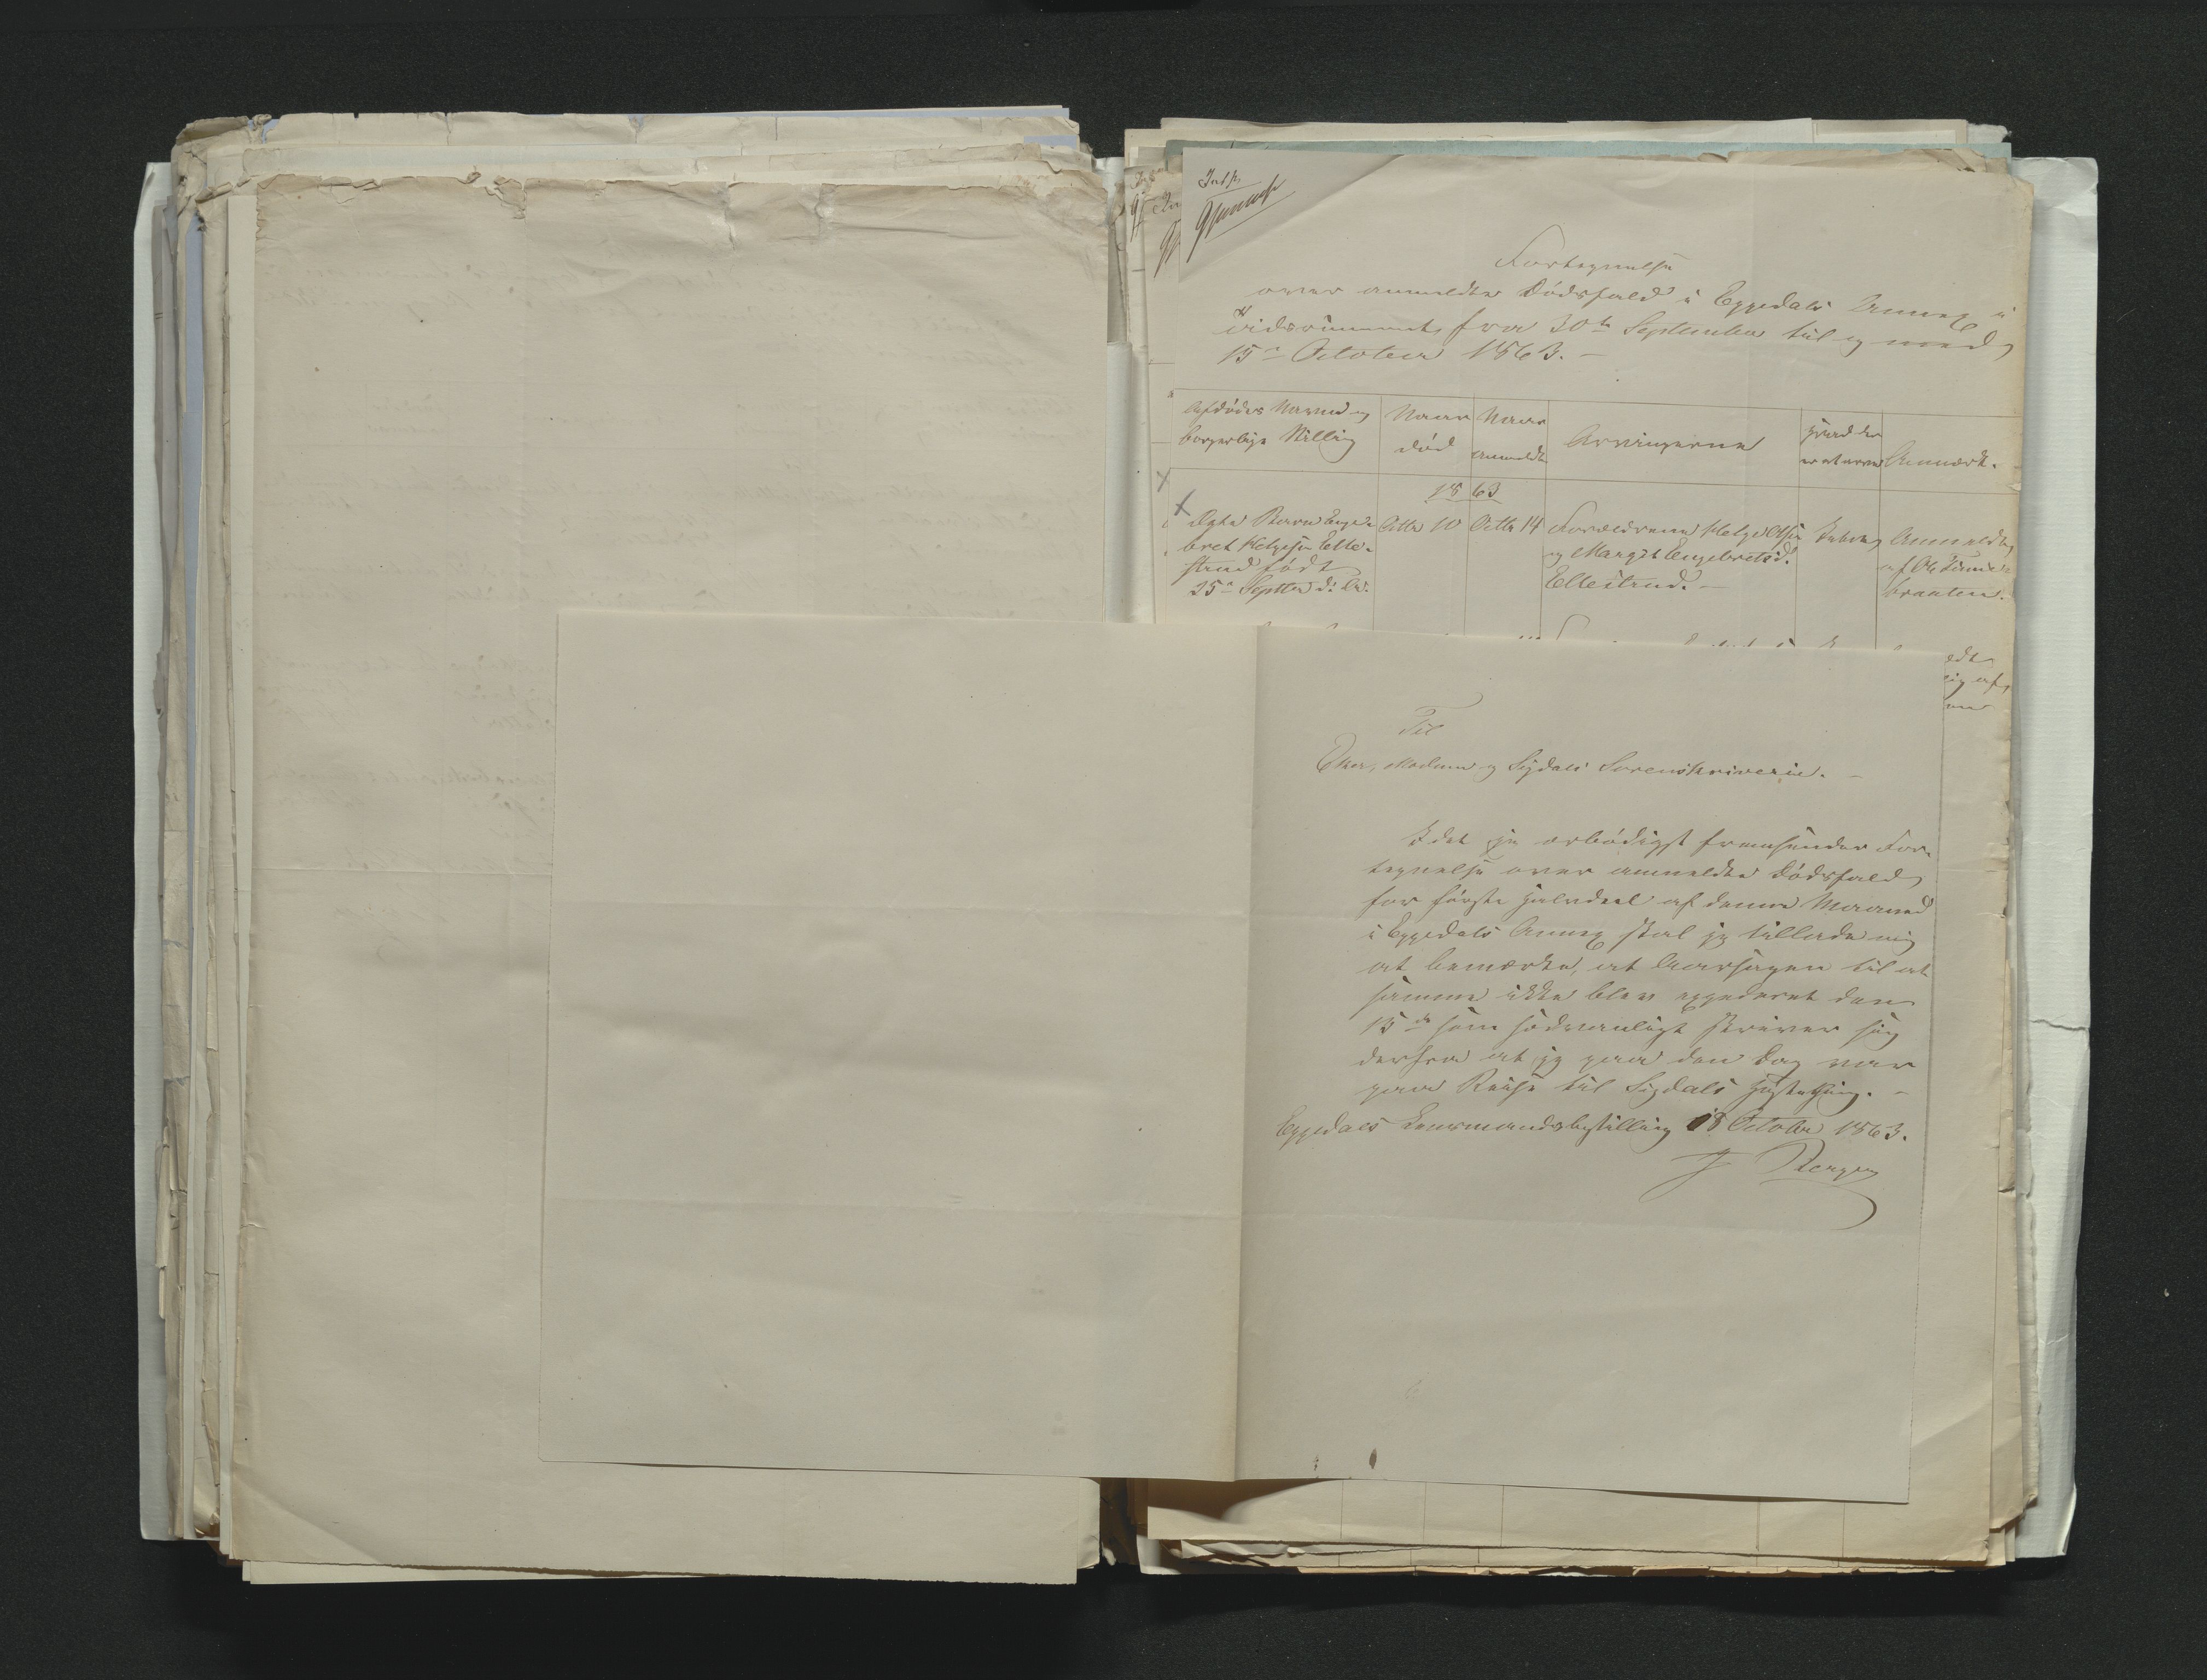 Fortegnelse
over anmeldte Dödsfald i Eggedals Annex i
Tidsrummet fra 30te September til og med
15de October 1863. –
Afdödes Navn og
borgerlige Stilling
Naar
död
Naar
anmeldt
Arvingerne
Hvad der
er at arve
Anmærk.
1863
Ægte Barn Enge-
bret Helgesen Elle-
strud födt
25de Septbr d: Aar.
Octbr 10
Octbr 14
Forældrene Helge Olsen
og Margit Engebretsd.
Ellestrud. –
Anmeldt
af Ole
braaten.
Til
Eker, Modum og Sigdals Sorenskriverie. –
Idet jeg ærbödigst fremsender For-
tegnelse over anmeldte Dödsfald
for förste Halvdeel af denne Maaned
i Eggedals Annex skal jeg tillade mig
at bemærke, at Aarsagen til at
samme ikke blev expederet den
15de som sædvanligt skriver sig
derfra at jeg paa den Dag var
paa Reise til Sigdals Høstething. –
Eggedals Lensmandsbestilling 18 October 1863.